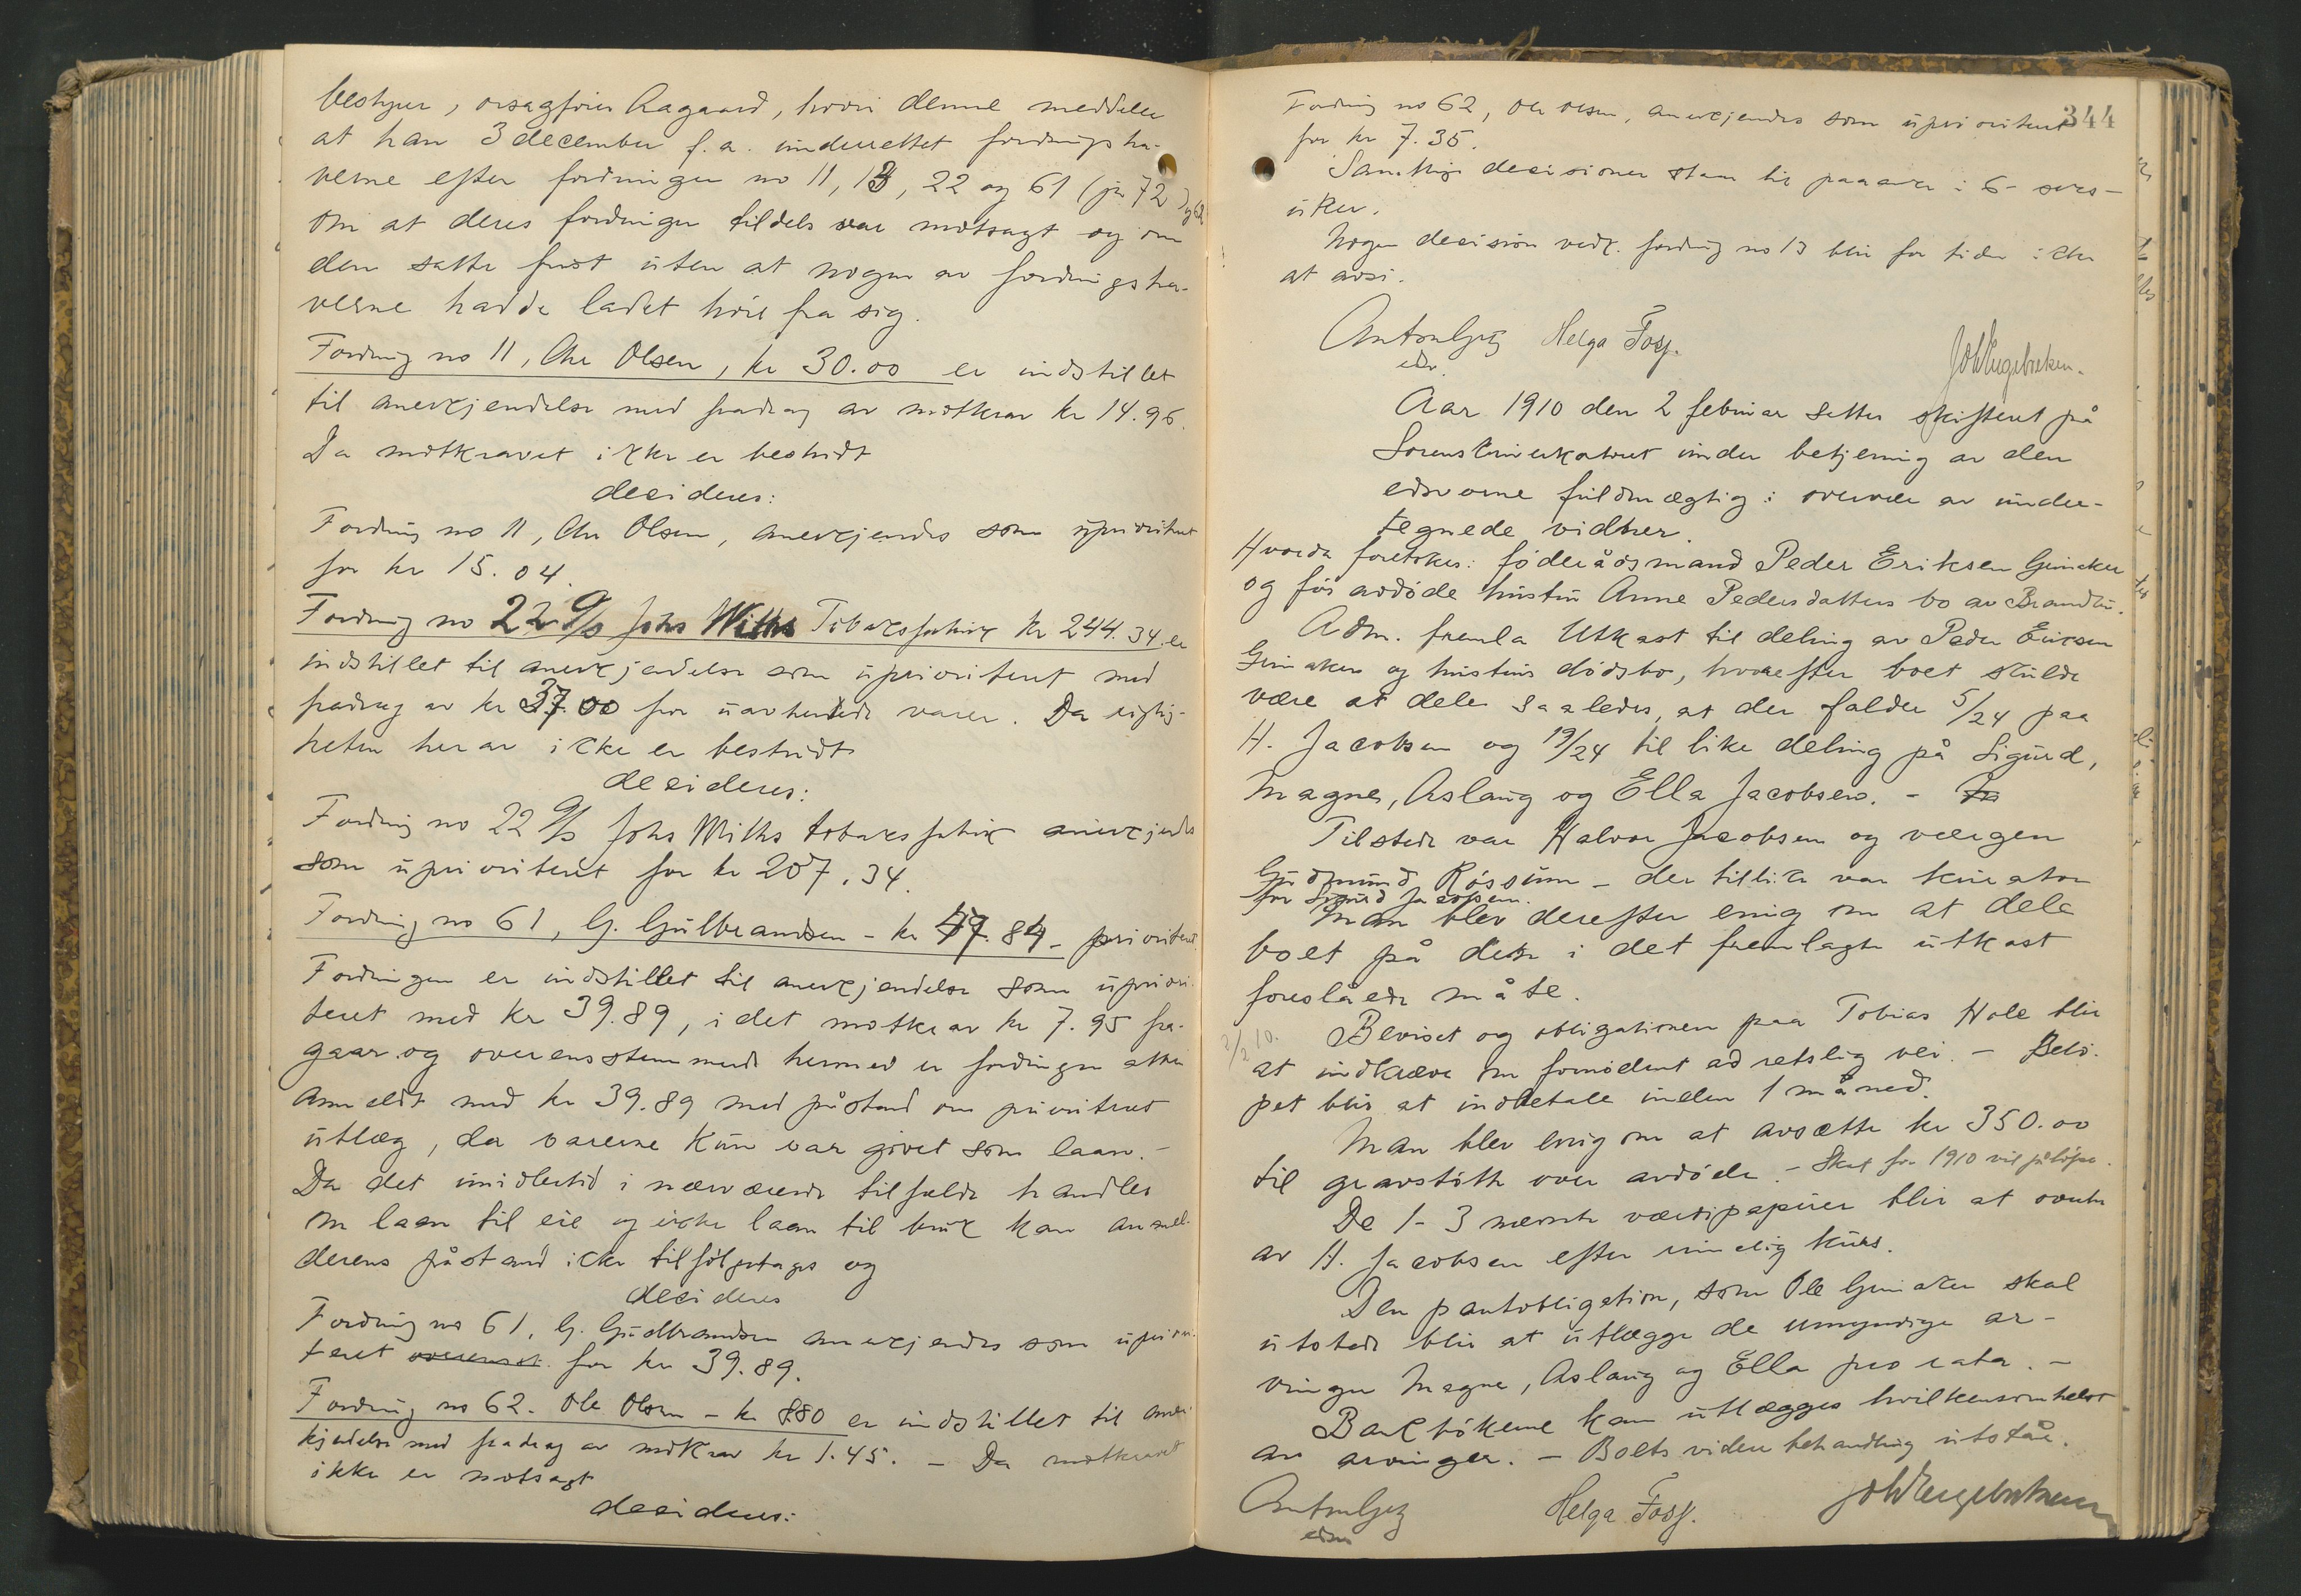 bestyrer, orsagfører Aagaard, hvori denne meddeler
at han 3 december f.a. underrettet fordringsha-
verne efter fordringer no 11, 13, 22 og 61 (jfr 72) og 62
om at deres fordringer tildels var motsagt og om
den satte frist uten at nogen av fordringsha-
verne hadde ladet høre fra sig.
Fordring no 11, Chr Olsen, kr 30.00 er indstillet
til anerkjendelse med fradrag av motkrav kr 14.96.
Da motkravet ikke er bestridt
decideres:
Fordring no 11, Chr Olsen, anerkjendes som uprioritert
for kr 15.04.
Fordring no 22 A/S Johs Withs Tobaksfabrik kr 244.34 er
indstillet til anerkjendelse som uprioritert med
fradrag av kr 37.00 for uavhentede varer. Da rigtig-
heten herav ikke er bestridt
decideres:
Fordring no 22 A/S Johs Withs tobaksfabrik anerkjendes
som uprioritert for kr 207.34.
Fordring no 61, G. Gulbrandsen - kr 47.84 - prioritert.
Fordringen er indstillet til anerkjendelse som upriori-
teret med kr 39.89, idet motkrav kr 7.95 fra-
gaar og overensstemmende hermed er fordringen atter
anmeldt med kr 39.89 med påstand om prioritert
utlæg, da varerne kun var givet som laan. -
Da det imidlertid i nærværende tilfælde handles
om laan til eie og ikke laan til bruk kan anmel-
derens påstand ikke tilfølgetages og
decideres
Fordring no 61, G. Gudbrandsen anerkjendes som upriori-
teret overensst. for kr 39.89.
Fordring no 62. Ole Olsen - kr 8.80 er indstillet til aner-
kjendelse med fradrag av motkrav kr 1.45. - Da motkravet
ikke er motsagt
decideres:
344
Fordring no 62, Ole Olsen, anerkjendes som uprioritert
for kr 7.35.
Samtlige decisioner staar til paaanke i 6 - seks -
uker.
Nogen decision vedk. fordring no 13 blir for tiden ikke
at avsi.
Helga Foss.
edsv.
Aar 1910 den 2 februar sattes skifteret på
Sorenskriverkontoret under betjening av den
edsvorne fuldmægtig i overvær av under-
tegnede vidner.
Hvorda foretokes: føderådsmand Peder Eriksen Grinaker
og før avdøde hustru Anne Pedersdatters bo av Brandbu.
Adm. fremla Utkast til deling av Peder Eriksen
Grinakers og hustrus dødsbo, hvorefter boet skulde
være at dele saaledes, at der falder 5/24 paa
H. Jacobsen og 19/24 til like deling på Sigurd,
Magne, Aslaug og Ella Jacobsen. -
Tilstede var Halvor Jacobsen og værgen
Gudmund Røssum - der tillike var kurator
for Sigurd Jacobsen.
Man blev derefter enig om at dele
boet på den i det fremlagte utkast
foreslåede måte.
2/2 10.
Beviset og obligationen paa Tobias Hole blir
at indkræve om fornødent ad retslig vei. - Belø-
pet blir at indbetale inden 1 måned.
Man blev enig om at avsætte kr 350.00
til gravstøtte over avdøde. - Skat for 1910 vil påløpe.
De 1-3 nævnte værdipapirer blir at overta
av H. Jacobsen efter rimelig kurs.
Den pantobligation, som Ole Grinaker skal
utstede blir at utlægge de umyndige ar-
vinger Magne, Aslaug og Ella pro rata. -
Bankbøkerne kan utlægges hvilkensomhelst
av arvinger. - Boets videre behandling utstår.
Helga Foss.
edsv